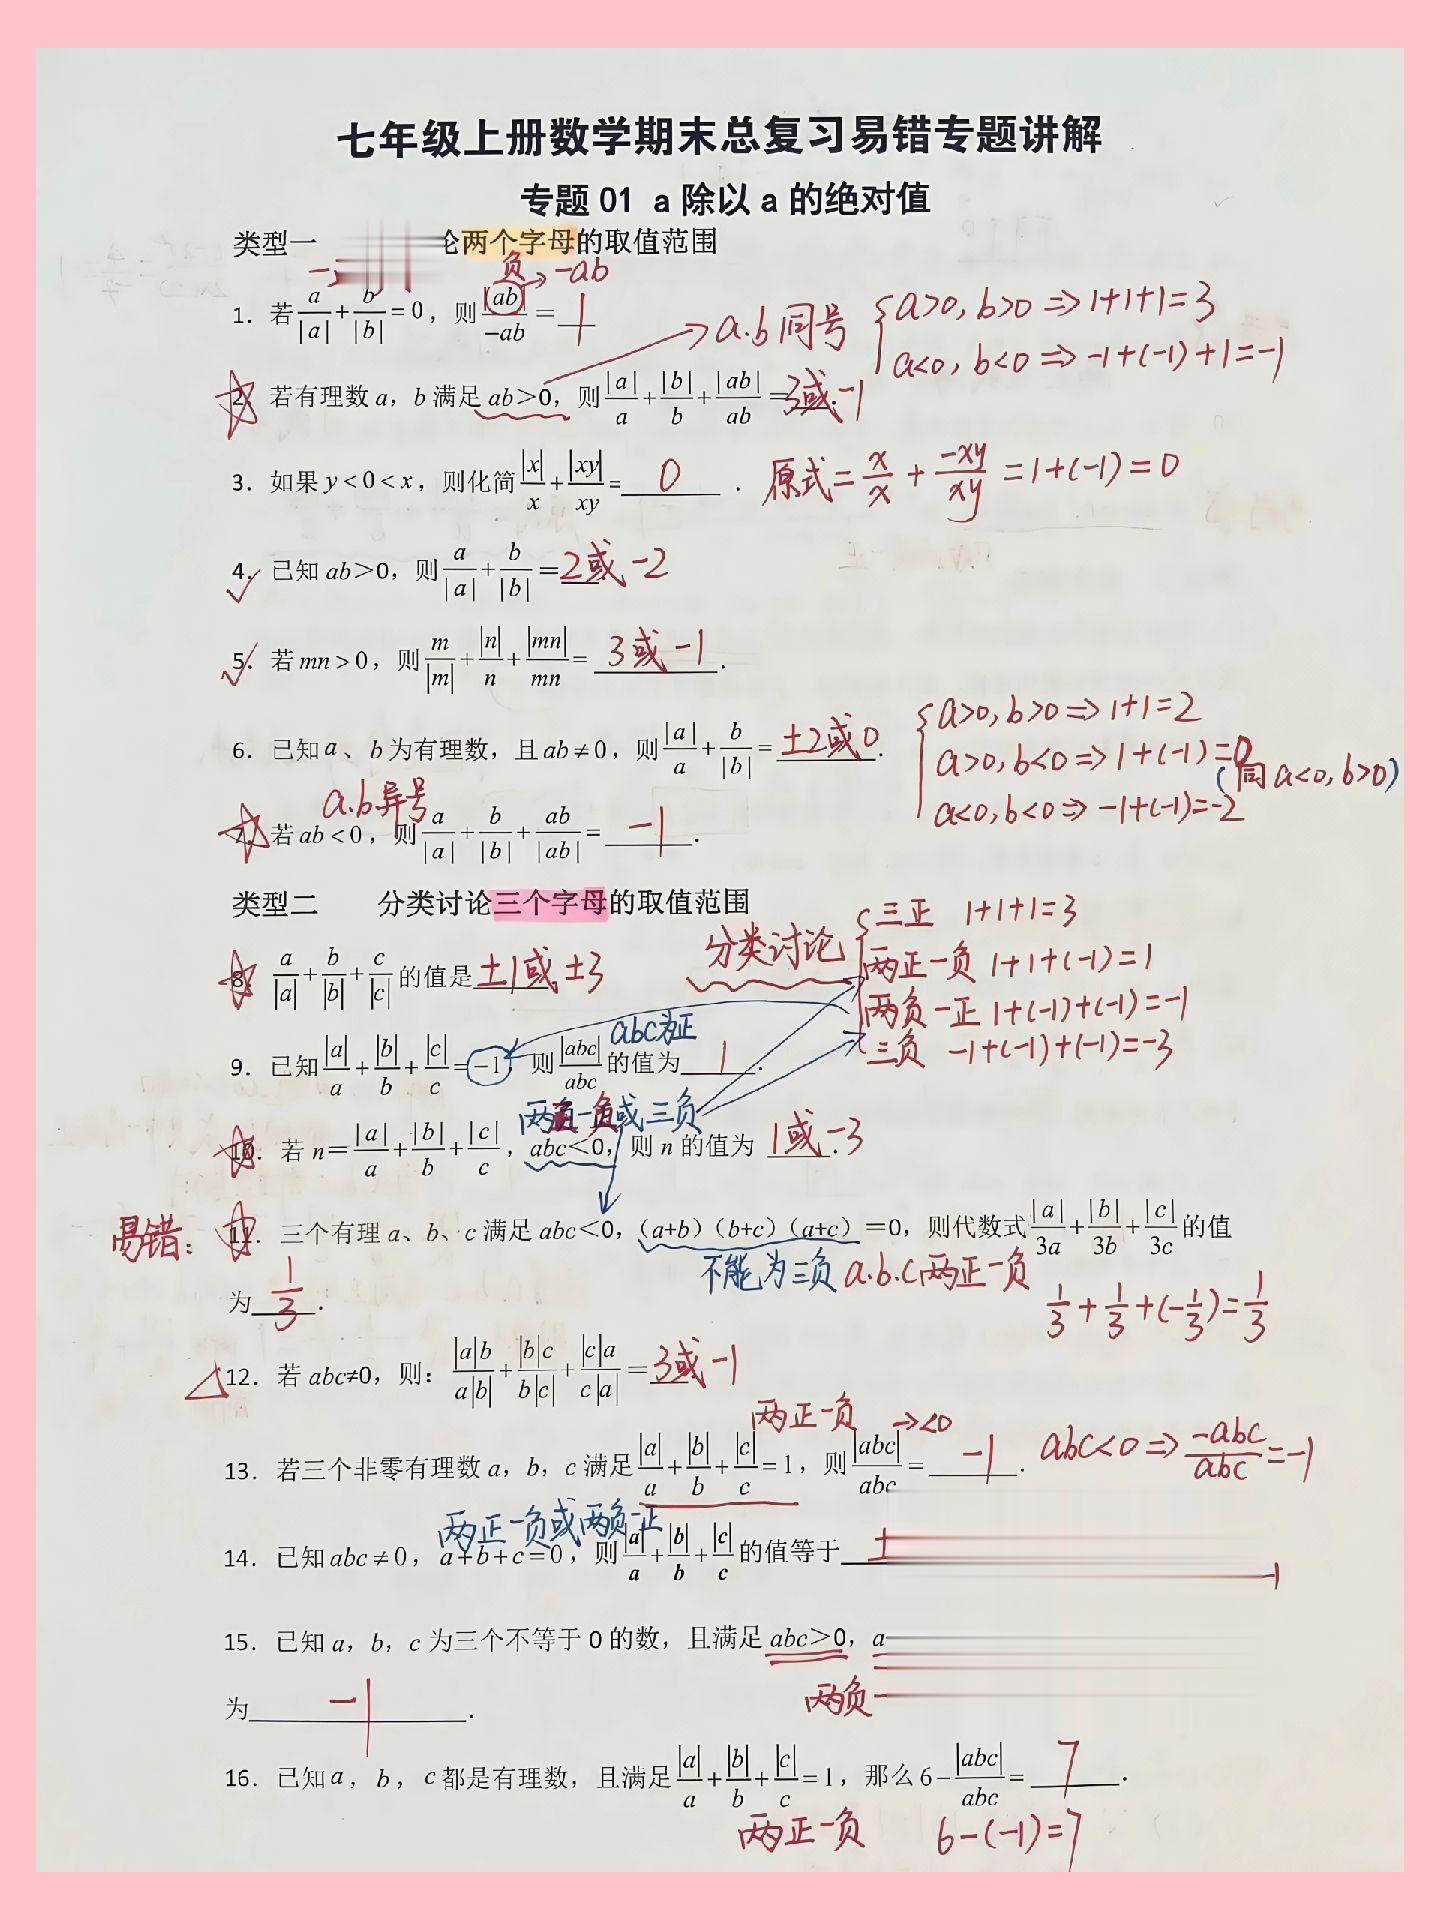 七年级上册数学期末总复习易错专题讲解
专题 01 a 除以 a 的绝对值
类型一 论两个字母的取值范围
负 → -ab
1. 若 a/|a| + b/|b| = 0，则 |ab|/-ab = 1
a.b同号 { a>0, b>0 ⇒ 1+1+1=3
a<0, b<0 ⇒ -1+(-1)+1=-1
2. 若有理数 a，b 满足 ab>0，则 |a|/a + |b|/b + |ab|/ab = 3或-1
3. 如果 y<0<x，则化简 |x|/x + |xy|/xy = 0 . 原式= x/x + -xy/xy =1+(-1)=0
4. 已知 ab>0，则 a/|a| + b/|b| = 2或-2
5. 若 mn>0，则 m/|m| + |n|/n + |mn|/mn = 3或-1 .
6. 已知 a、b 为有理数，且 ab≠0，则 |a|/a + b/|b| = ±2或0 .
{ a>0, b>0 ⇒ 1+1=2
a>0, b<0 ⇒ 1+(-1)=0
(同a<0, b>0)
a<0, b<0 ⇒ -1+(-1)=-2
a.b异号
7. 若 ab<0，则 a/|a| + b/|b| + ab/|ab| = -1 .
类型二 分类讨论三个字母的取值范围
分类讨论 { 三正 1+1+1=3
两正一负 1+1+(-1)=1
两负一正 1+(-1)+(-1)=-1
三负 -1+(-1)+(-1)=-3
8. a/|a| + b/|b| + c/|c| 的值是 ±1或±3
abc为正
9. 已知 |a|/a + |b|/b + |c|/c = -1，则 |abc|/abc 的值为 1 .
两正一负或三负
10. 若 n= |a|/a + |b|/b + |c|/c ，abc<0，则 n 的值为 1或-3 .
易错:
11. 三个有理 a、b、c 满足 abc<0,（a+b）（b+c）（a+c）=0，则代数式 |a|/3a + |b|/3b + |c|/3c 的值
不能为三负 a.b.c两正一负
为 1/3 .
1/3 + 1/3 + (-1/3) = 1/3
12. 若 abc≠0，则： |a|b/a|b| + |b|c/b|c| + |c|a/c|a| = 3或-1
两正一负 →<0
13. 若三个非零有理数 a，b，c 满足 |a|/a + |b|/b + |c|/c = 1，则 |abc|/abc = -1 . abc<0 ⇒ -abc/abc = -1
两正一负或两负一正
14. 已知 abc≠0，a+b+c=0，则 |a|/a + |b|/b + |c|/c 的值等于
15. 已知 a，b，c 为三个不等于 0 的数，且满足 abc>0，a
两负
为 -1 .
16. 已知 a，b，c 都是有理数，且满足 |a|/a + |b|/b + |c|/c = 1，那么 6- |abc|/abc = 7 .
两正一负 6-(-1)=7